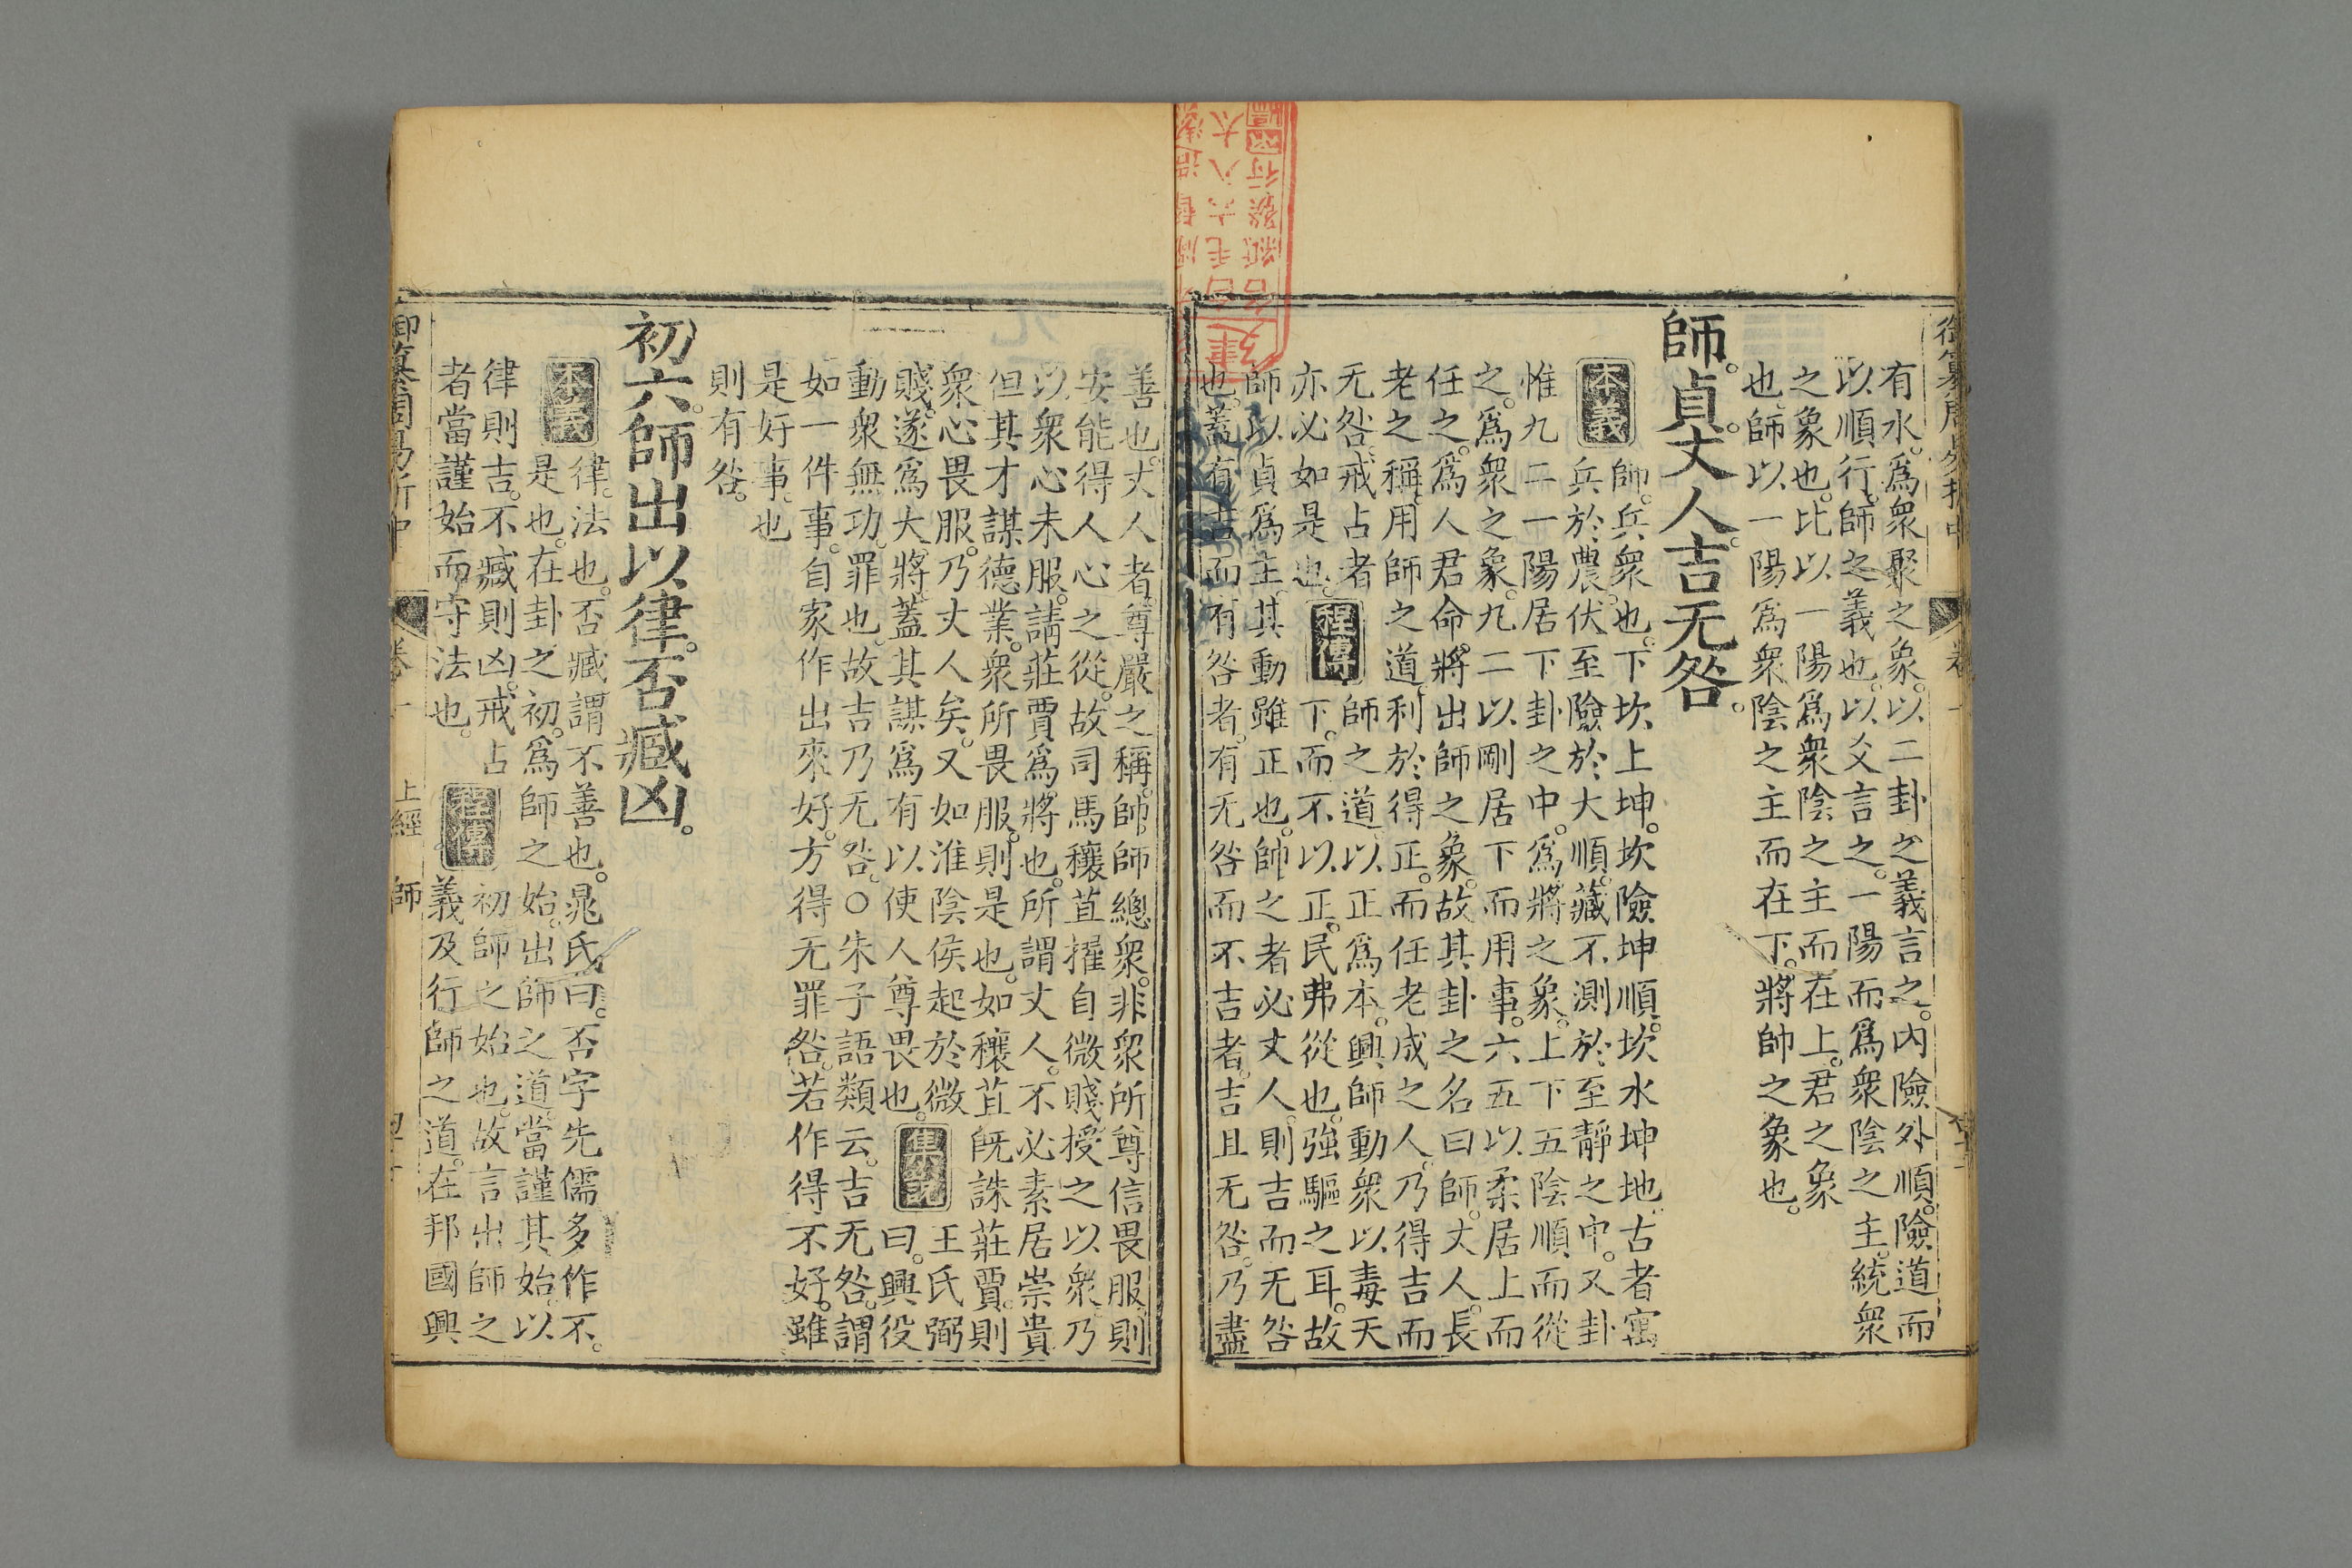 有水。爲衆聚之象。以二卦之義言之。内險外順。險道而
以順行。師之義也。以爻言之。一陽而爲衆陰之主。統衆
之象也。比以一陽爲衆陰之主而在上。君之象
也。師以一陽爲衆陰之主而在下。將帥之象也。
師。貞。丈人。吉无咎。
本義
師。兵衆也。下坎上坤。坎險坤順。坎水坤地。古者寓
兵於農。伏至險於大順。藏不測於至靜之中。又卦
惟九二一陽居下卦之中。爲將之象。上下五陰順而從
之。爲衆之象。九二以剛居下而用事。六五以柔居上而
任之。爲人君命將出師之象。故其卦之名曰師。丈人。長
老之稱。用師之道。利於得正。而任老成之人。乃得吉而
无咎。戒占者
亦必如是也。
程傳
師之道。以正爲本。興師動衆以毒天
下。而不以正。民弗從也。強驅之耳。故
師以貞爲主。其動雖正也。帥之者必丈人。則吉而无咎
也。蓋有吉而有咎者。有无咎而不吉者。吉且无咎。乃盡
善也。丈人者尊嚴之稱。帥師總衆。非衆所尊信畏服。則
安能得人心之從。故司馬穰苴擢自微賤。授之以衆。乃
以衆心未服。請莊賈爲將也。所謂丈人。不必素居崇貴。
但其才謀德業。衆所畏服。則是也。如穰苴旣誅莊賈。則
衆心畏服。乃丈人矣。又如淮陰侯起於微
賤。遂爲大將。蓋其謀爲有以使人尊畏也。
集說
王氏弼
曰。興役
動衆無功。罪也。故吉乃无咎。○朱子語類云。吉无咎。謂
如一件事。自家作出來好。方得无罪咎。若作得不好。雖
是好事。也
則有咎。
初六。師出以律。否臧凶。
本義
律。法也。否臧謂不善也。晁氏曰。否字先儒多作不。
是也。在卦之初。爲師之始。出師之道。當謹其始。以
律則吉。不臧則凶。戒占
者當謹始而守法也。
程傳
初師之始也。故言出師之
義及行師之道。在邦國興
上經　師